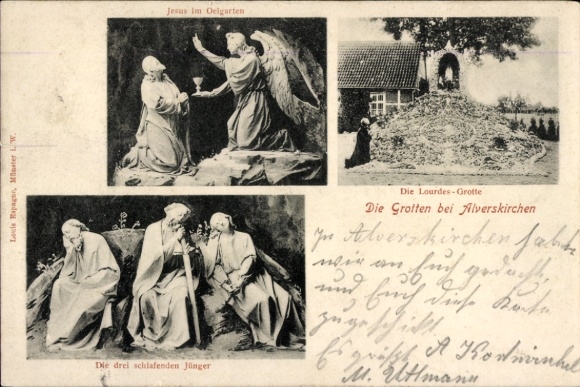 Jesus im Oelgarten
Die Lourdes-Grotte
Die Grotten bei Alverskirchen
Die drei schlafenden Jünger
Louis Espagne, Münster i. W.
In Alverskirchen
wir an Euch gedacht,
und Euch diese Karte
zugeschickt.
Es grüßt A
M. Uhlmann